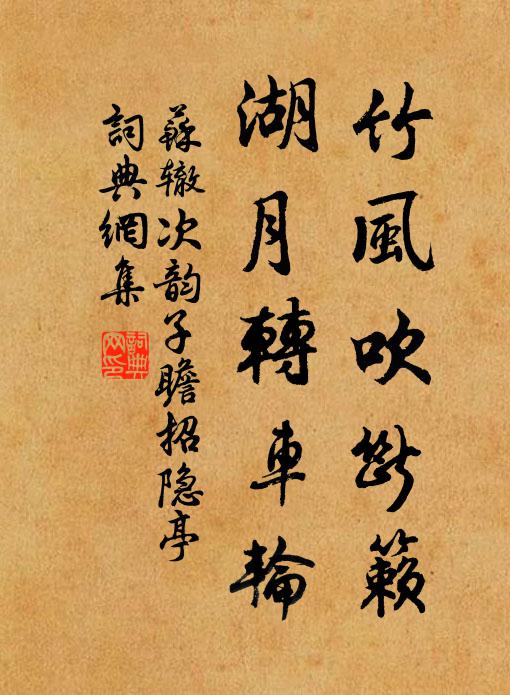 竹風吹斷籟
湖月轉車輪
蘇辙次韵子瞻招隐亭
詞典網集
詞典
网印